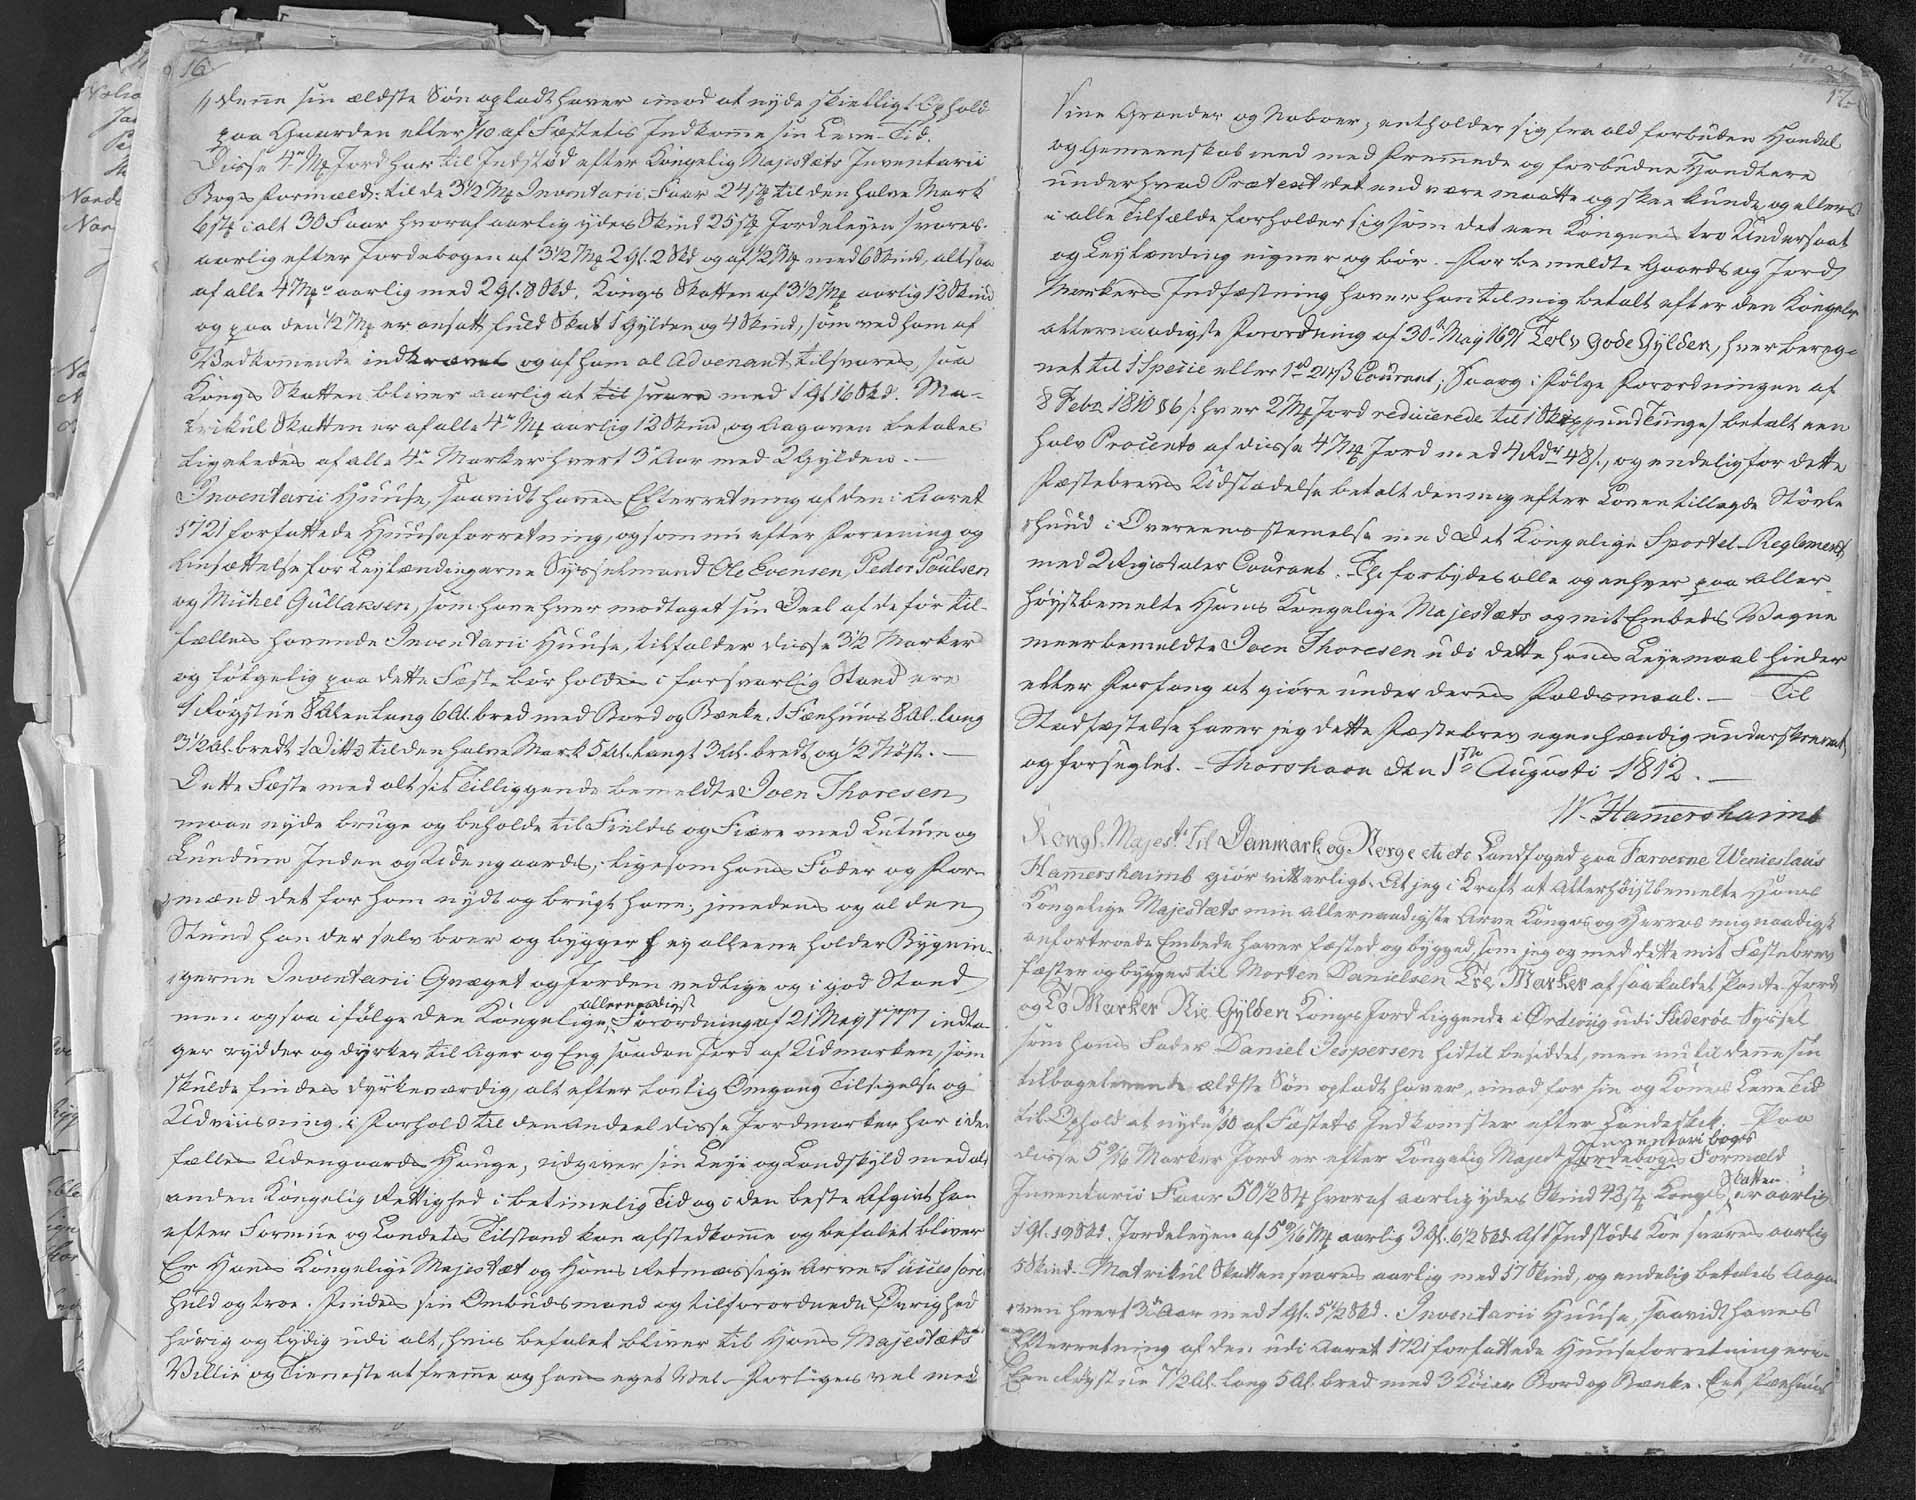 16
denne sin ældste Søn opladt haver imod at nyde skielligt Ophold
paa Gaarden eller 1/10 af Fæstets Indkomme sin Leve-Tid.
Disse 4re Mk Jord har til Indstød efter Kongelig Majestæts Inventarii
Bogs Formæld: til de 3½ Mk Inventarii Faar 24 stk til den halve Mark
6 stk ialt 30 Faar hvoraf aarlig ydes Skind 25 stk Jordeleyen svares
aarlig efter Jordebogen af 3½ Mk 2 Gl. 2 Skd og af ½ Mk med 6 Skind, altsaa
af alle 4 Mk aarlig med 2 Gl. 8 Skd. Kongs Skatten af 3½ Mk aarlig 12 Skind
og paa den ½ Mk er ansatt fuld Skat 1 Gylden og 4 Skind, som ved ham af
Vedkommende indkræves og af ham al advenant tilsvares, saa
Kongs Skatten bliver aarlig at til svare med 1 Gl 16 Skd. Ma-
trikul Skatten er af alle 4re Mk aarlig 12 Skind og Aagaven betales
ligeledes af alle 4re Marker hvert 3die Aar med 2 Gylden.
Inventarii Huuse, saavidt haves Efterretning af den i Aaret
1721 forfattede Huuseforretning, og som nu efter Foreening og
Ansættelse for Leylændingerne Sysselmand Ole Evensen, Peder Poulsen
og Michel Gullaksen, som have hver modtaget sin Deel af de før til-
fælles havende Inventarii Huuse, tilfalder disse 3½ Marker
og følgelig paa dette Fæste bør holdes i forsvarlig Stand ere
1 Røgstue 8 Alen lang 6 Al. bred med Bord og Bænke, 1 Fæehuus 8 Al. lang
3½ Al. bredt 1 Ditto til den halve Mark 5 Al. langt 3 Al. bredt og ½ Nøst.
Dette Fæste med alt sit Tilliggende bemeldte Joen Thoresen
maae nyde bruge og beholde til Fields og Fiære med Lutum og
Lundum Inden og Udengaards, ligesom hans Fader og For-
mænd det for ham nydt og brugt have; imedens og al den
Stund han der selv boer og bygger ey alleene holder Bygnin-
gerne Inventarii Qvæget og Jorden vedlige og i god Stand
men ogsaa ifølge den Kongelige allernaadigst Forordning af 21 May 1777 indta-
ger rydder og dyrker til Ager og Eng saadan Jord af Udmarken, som
skulde findes dyrkeværdig, alt efter lovlig Omgang Tilsigelse og
Udviisning i Forhold til den Andeel disse Jordmarker har i de
fælles Udengaards Hauge, udgiver sin Leye og Landskyld med al
anden Kongelig Rettighed i betimelig Tid og i den beste Afgivt han
efter Formue og Landets Tilstand kan afstedkomme og befalet bliver
Er Hans Kongelige Majestæt og Hans Retmæssige Arve Successorer
huld og troe. Findes sin Ombudsmand og tilforordnede Øvrighed
hørig og lydig udi alt, hvis befalet bliver til Hans Majestæts
Villie og Tieneste at fremme og hans eget Vel. Forliges vel med
17.
Sine Grander og Naboer; entholder sig fra ald forbuden Handel
og Gemeenskab med Fremmede og forbudne Handlere
under hvad Prætext det end være maatte og skee kunde og ellers
i alle Tilfælde forholder sig som det een Kongens tro Undersaat
og Leylænding eigner og bør. For bemeldte Gaards og Jord
Markers Indfæstning haver han til mig betalt efter den Kongelige
allernaadigste Forordning af 30te May 1691 Tolv gode Gylden, hver bereg-
net til 1 Specie eller 1 rd 24 ß Courant; Saavog i Følge Forordningen af
8 Febr 1810 § 6 /: hver 2 Mk Jord reducerede til 1 Skippund Tunge/ betalt een
halv Procento af disse 4 Mk Jord med 4 Rdr 48 ß, og endelig for dette
Fæstebrevs Udstædelse betalt den mig efter Loven tillagde Støvle
huud i Overeensstemmelse med det Kongelige Sportel-Reglement
med 2 Rigisdaler Courant. Thi forbydes alle og enhver paa Aller
høystbemelte Hans Kongelige Majestæts og mit Embeds Vegne
meerbemeldte Joen Thoresen udi dette hans Leyemaal hinder
eller Forfang at giøre under deres Faldsmaal. — Til
Stadfæstelse haver jeg dette Fæstebrev egenhændig underskrevet
og forseglet. - Thorshavn den 1ste Augusti 1812.
W. Hamershaimb
Kongl. Majest. til Danmark og Norge etc etc Landfoged paa Færoerne Wenieslaus
Hamershaimb giør vitterligt: At jeg i Kraft at Allerhøistbemelte Hans
Kongelige Majestæts min allernaadigste Arve Konges og Herres mig naadigst
anfortroede Embede haver fæsted og bygged, som jeg og med dette mit Fæstebrev
fæster og bygger til Morten Danielsen Tre Marker af saa kaldet Pante Jord
og To Marker Nie Gylden Kongs Jord liggende i Ordeviig udi Suderøe Syssel
som hans Fader Daniel Jespersen hidtil besiddet, men nu til denne sin
tilbagelevende ældste Søn opladt haver, imod for sin og Kones Leve Tid
til Ophold at nyde 3/10 af Fæstets Indkomster efter Landeskik. Paa
disse 5 9/16 Marker Jord er efter Kongelig Majest. Jordebogs Inventarii bogs Formæld
Inventarii Faar 50½ Stk hvoraf aarlig ydes Skind 42 stk Konges Skatten er aarlig
1 Gl. 19 Skd. Jordeleyen af 5 9/16 Mk aarlig 3 Gl. 6½ Skd Af 1 Indstøds Koe svares aarlig
5 Skind. Matrikul Skatten svares aarlig med 17 Skind, og endelig betales Aaga-
ven hvert 3die Aar med 1 Gl. 5½ Skd. Inventarii Huuse, saavidt haves
Efterretning af den udi Aaret 1721 forfattede Huuseforretning ere
Een Røgstue 7½ Al. lang 5 Al. bred med 3 Køier Bord og Bænke. Eet Fæehuus